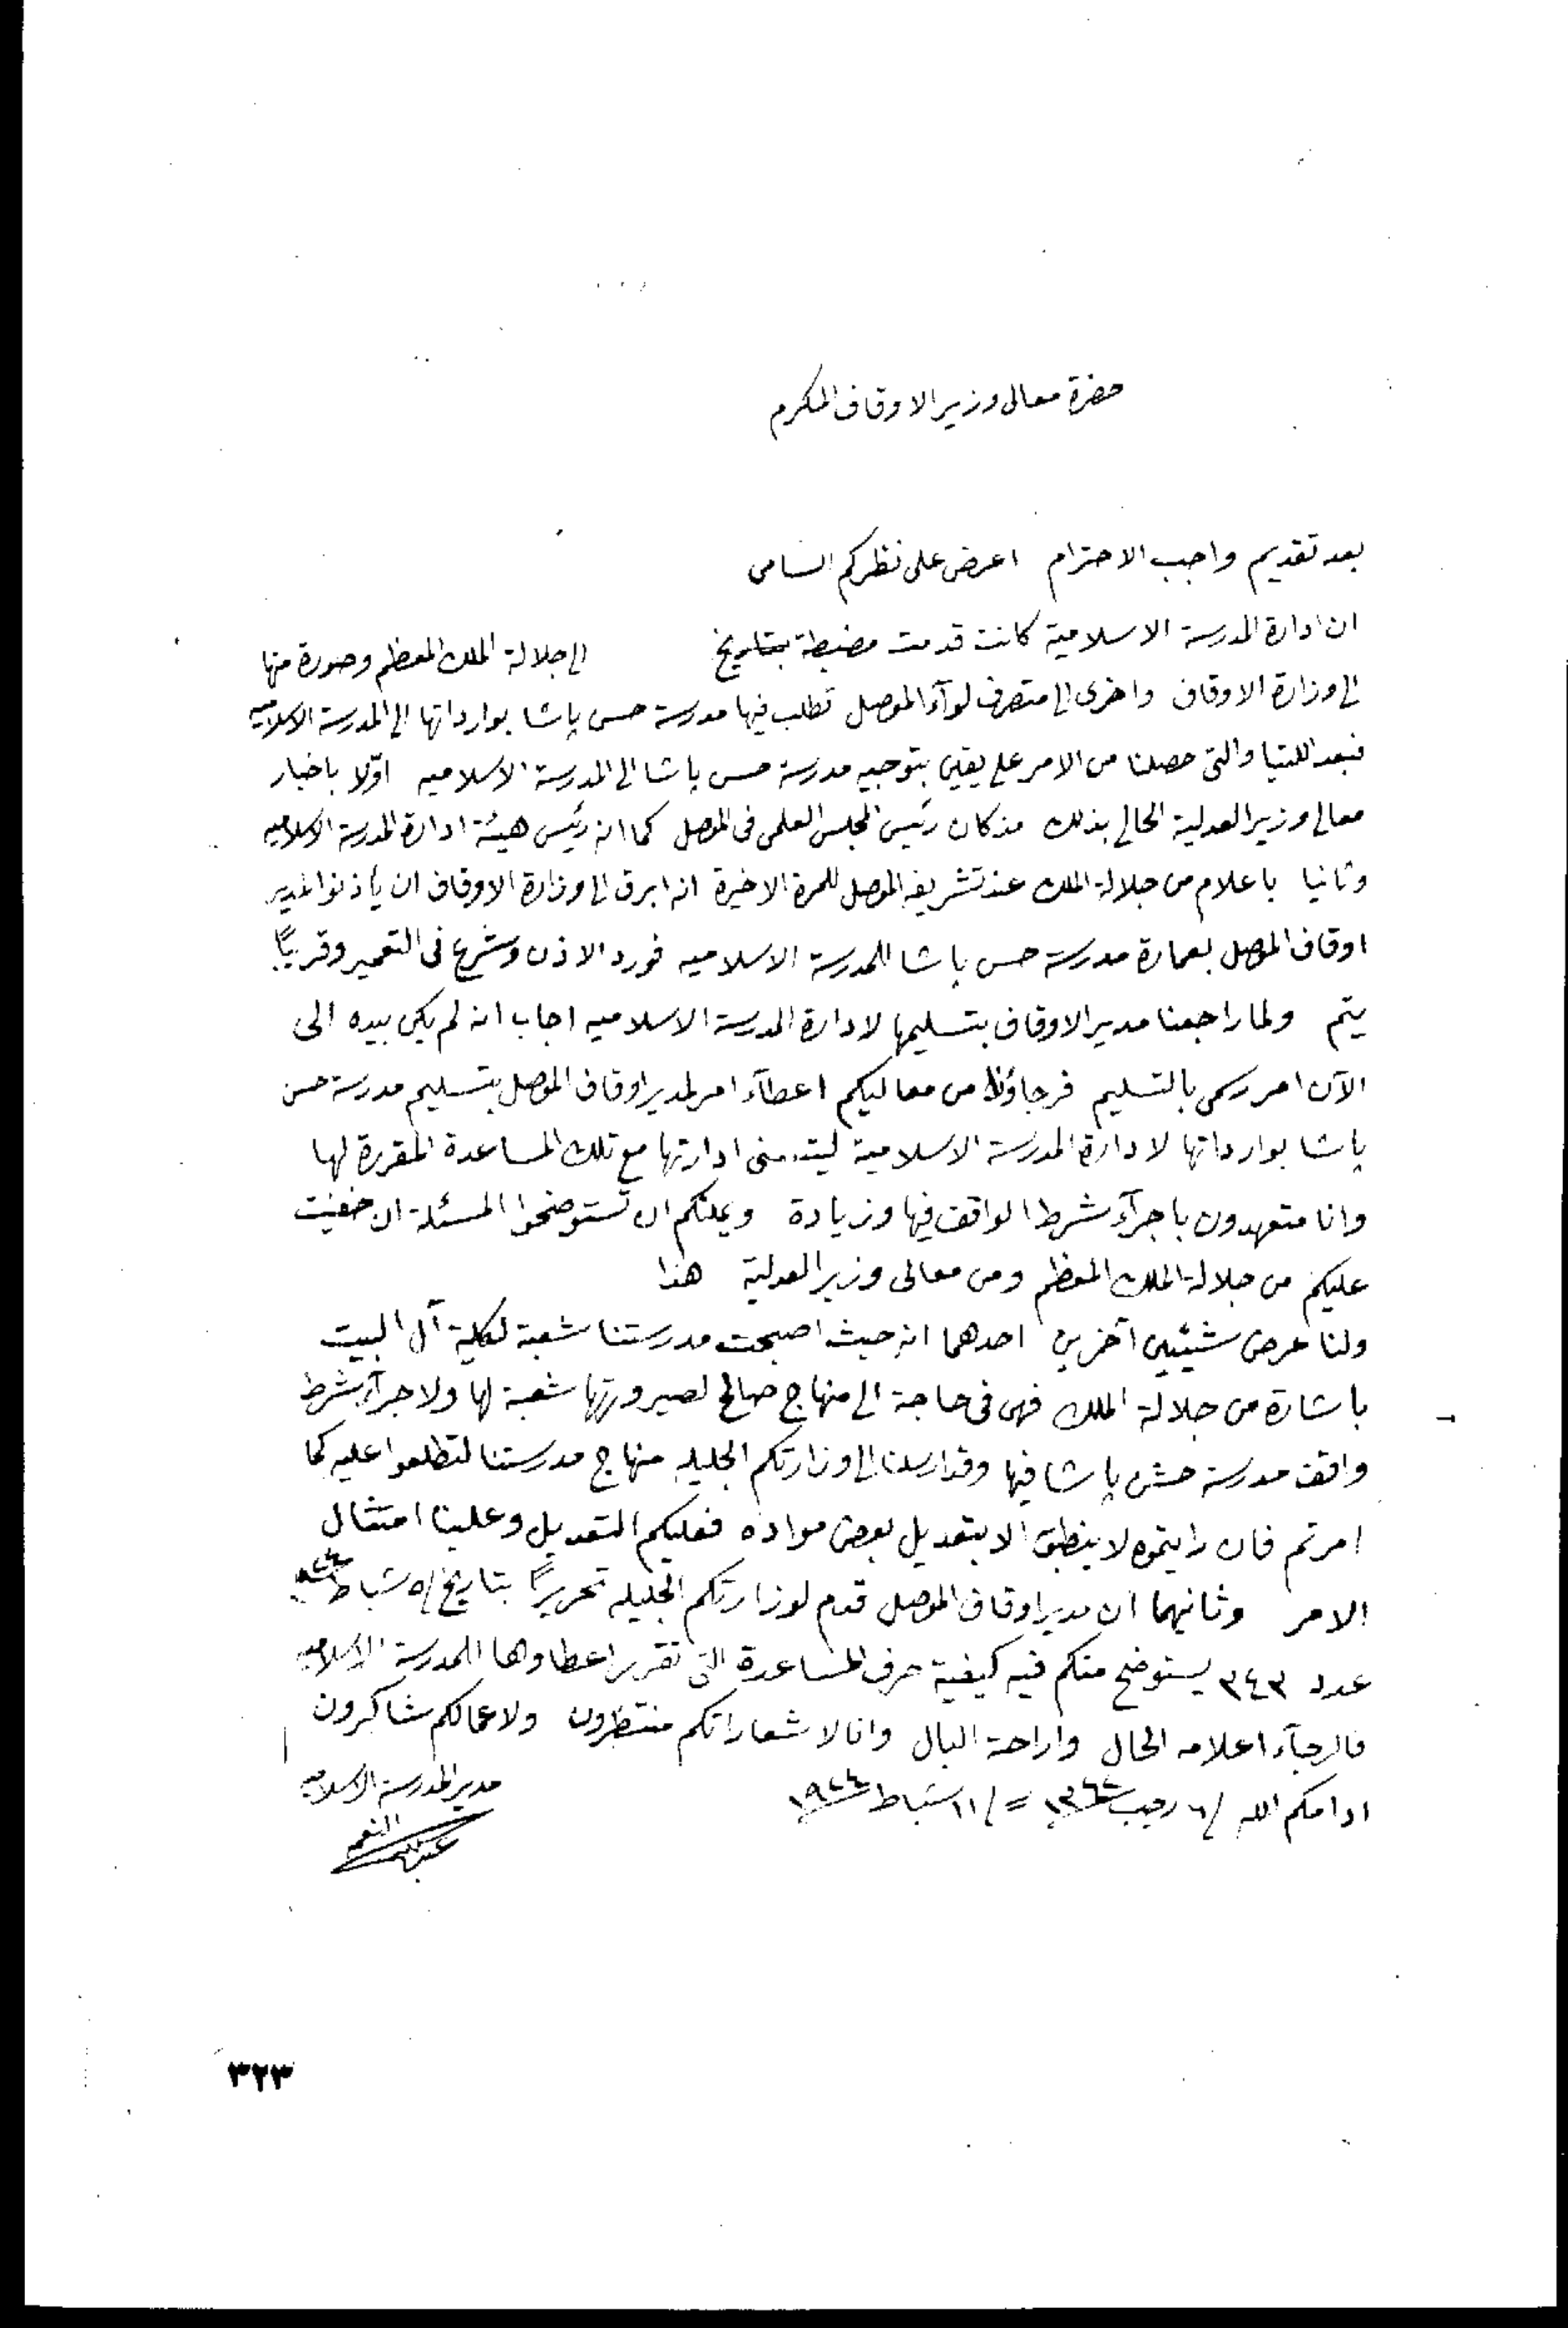 حضرة معالى وزير الاوقاف المكرم
بعد تقديم واجب الاحترام اعرض على نظركم السامى
ان ادارة المدرسة الاسلامية كانت قدمت مضبطة بتاريخ الى جلالة الملك المعظم وصورة منها
الى وزارة الاوقاف واخرى الى متصرف لوآء الموصل تطلب فيها مدرسة حسن پاشا بوارداتها الى المدرسة الاسلاميه
فبعد اللتيا والتى حصلنا من الامر على يقين بتوجيه مدرسة حسن پاشا الى المدرسة الاسلاميه اوّلا باخبار
معالى وزير العدلية الحالى بذلك مذ كان رئيس المجلس العلمى فى الموصل كما انه رئيس هيئة ادارة المدرسة الاسلاميه
وثانيا باعلام من جلالة الملك عند تشريفه الموصل للمرة الاخيرة انه ابرق الى وزارة الاوقاف ان يأذنوا لمدير
اوقاف الموصل بعمارة مدرسة حسن پاشا للمدرسة الاسلاميه فورد الاذن وشرع فى التعمير وقريبًا
يتم ولما راجعنا مدير الاوقاف بتسليمها لادارة المدرسة الاسلاميه اجاب انه لم يكن بيده الى
الآن امر رسمى بالتسليم فرجاؤنا من معاليكم اعطآء امر لمدير اوقاف الموصل بتسليم مدرسة حسن
پاشا بوارداتها لادارة المدرسة الاسلامية ليتسنى ادارتها مع تلك المساعدة المقررة لها
وانا متعهدون باجرآء شرط الواقف فيها وزيادة ويمكنكم ان تستوضحوا المسئلة ان خفيت
عليكم من جلالة الملك المعظم ومن معالى وزير العدلية هذا
ولنا عرض شيئين آخرين احدهما انه حيث اصبحت مدرستنا شعبة لكلية آل البيت
باشارة من جلالة الملك فهى فى حاجة الى منهاج صالح لصيرورتها شعبة لها ولاجرآء شرط
واقف مدرسة حسن پاشا فيها وقد ارسلنا الى وزارتكم الجليله منهاج مدرستنا لتطلعوا عليه كما
امرتم فان رايتموه لا ينطبق الا بتعديل بعض مواده فعليكم التعديل وعلينا امتثال
الامر وثانيهما ان مدير اوقاف الموصل قدم لوزارتكم الجليله تحريرًا بتاريخ /٥ شباط ٩٢٤
عدد ٣٤٣ يستوضح منكم فيه كيفية صرف المساعدة التى تقرر اعطاوها للمدرسة الاسلاميه
فالرجآء اعلامه الحال واراحة البال وانا لاشعاراتكم منتظرون ولاعمالكم شاكرون
ادامكم الله /٦ رجب ١٣٤٢ = /١١ شباط ١٩٢٤
مدير المدرسة الاسلاميه
النعمه
٣٢٣